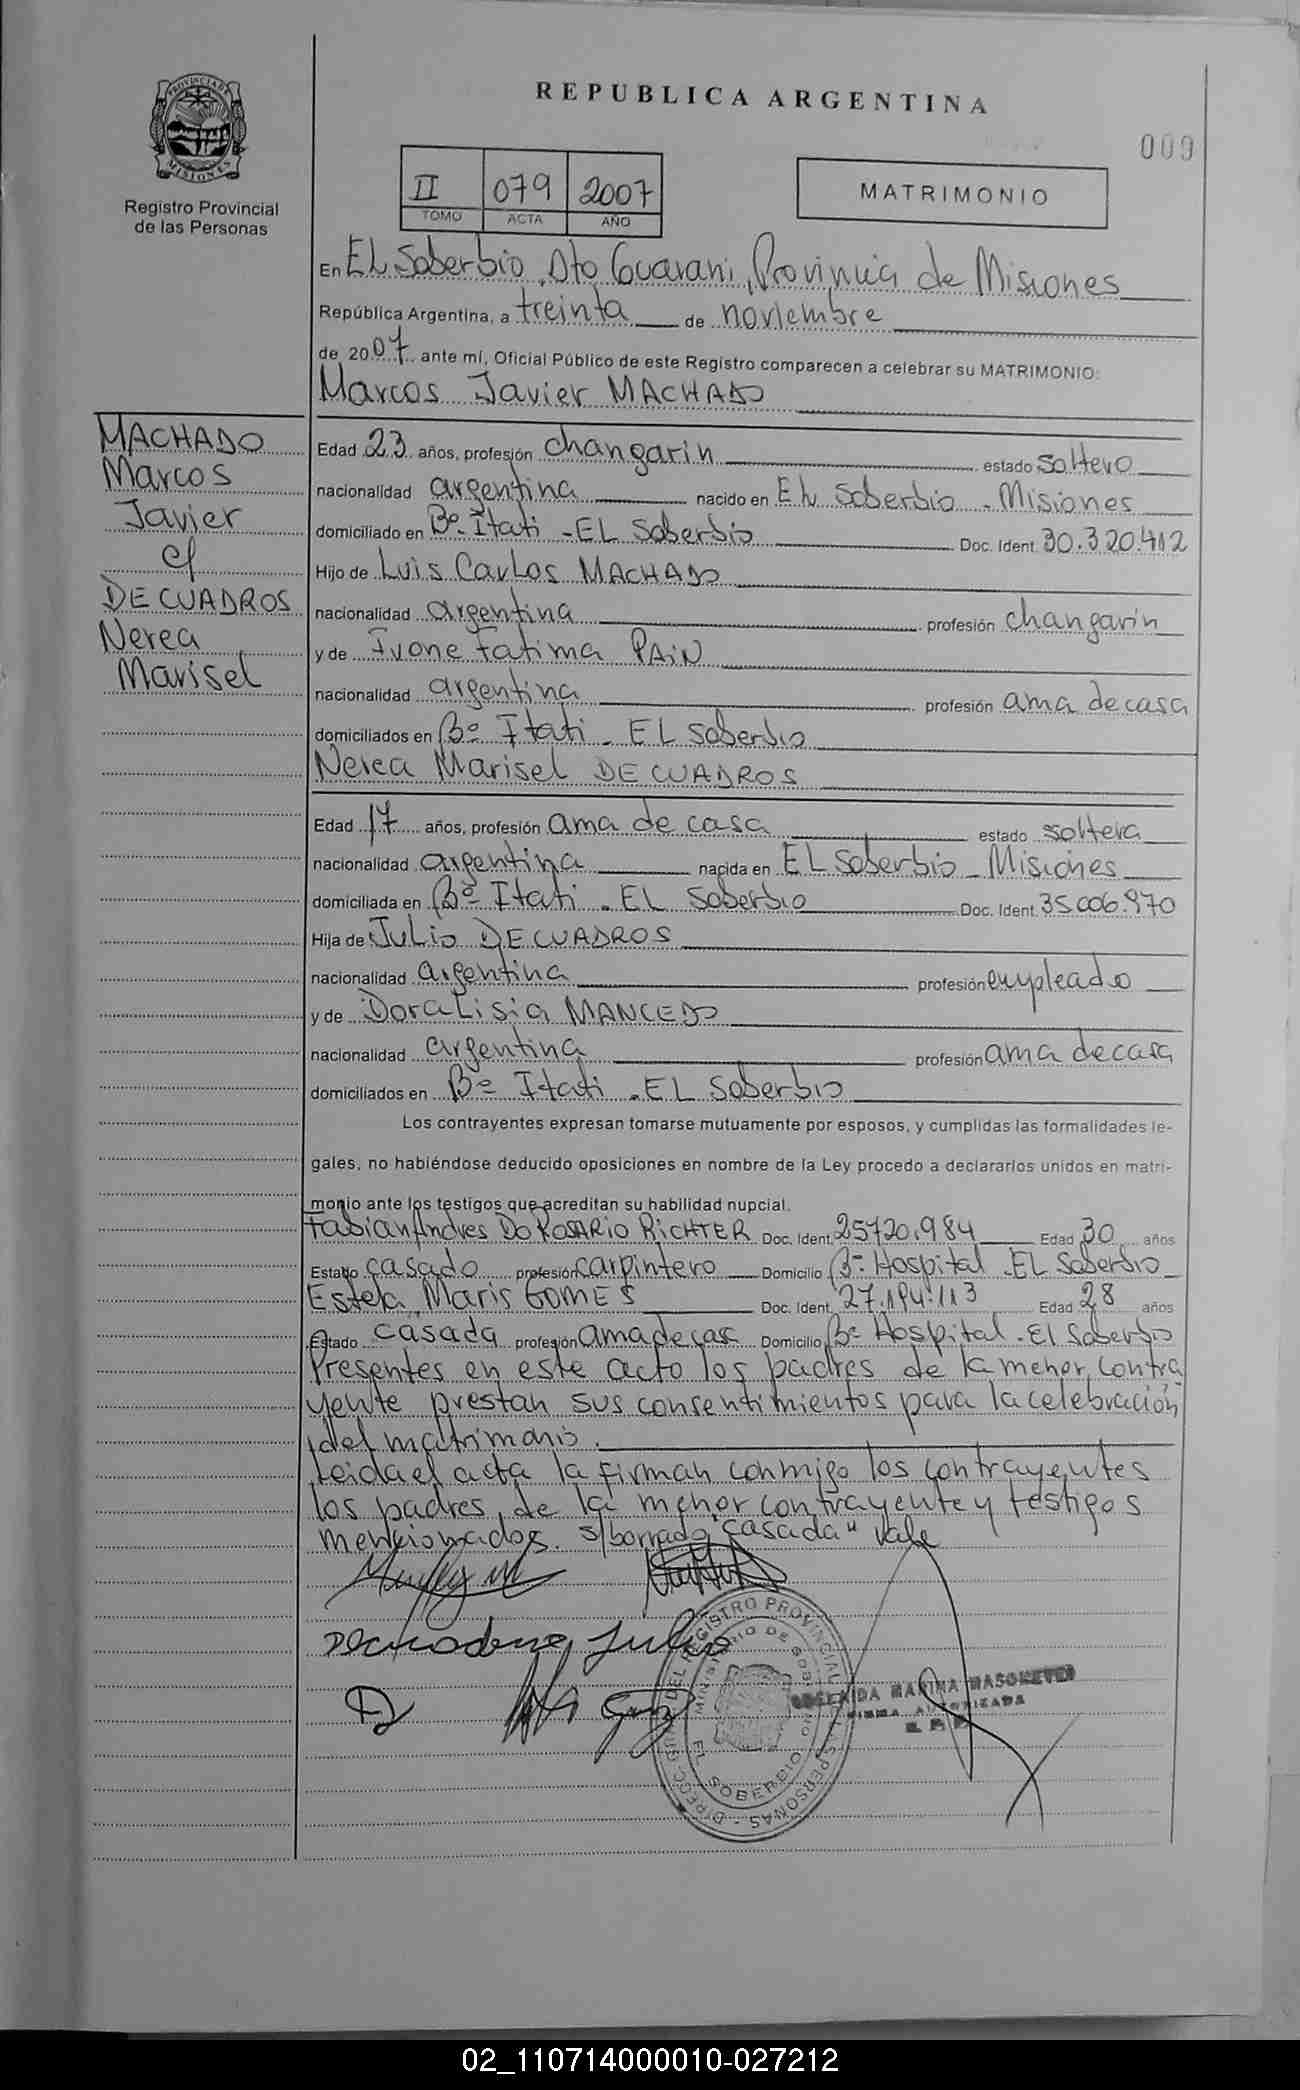 REPUBLICA ARGENTINA
009
PROVINCIA DE MISIONES
Registro Provincial
de las Personas
II 079 2007
TOMO ACTA AÑO
MATRIMONIO
En EL Soberbio, Dto Guarani, Provincia de Misiones
República Argentina, a treinta de noviembre
de 2007 ante mí, Oficial Público de este Registro comparecen a celebrar su MATRIMONIO:
Marcos Javier MACHADO
MACHADO
Marcos
Javier
c/
DE CUADROS
Nerea
Marisel
Edad 23 años, profesión changarin estado soltero
nacionalidad argentina nacido en EL Soberbio - Misiones
domiciliado en Bº Itati - EL Soberbio Doc. Ident. 30.320.412
Hijo de Luis Carlos MACHADO
nacionalidad argentina profesión changarin
y de Ivone Fatima PAIN
nacionalidad argentina profesión ama de casa
domiciliados en Bº Itati - EL Soberbio
Nerea Marisel DE CUADROS
Edad 17 años, profesión ama de casa estado soltera
nacionalidad argentina nacida en EL Soberbio - Misiones
domiciliada en Bº Itati - EL Soberbio Doc. Ident. 35.006.970
Hija de Julio DE CUADROS
nacionalidad argentina profesión empleado
y de Doralisia MANCEDO
nacionalidad argentina profesión ama de casa
domiciliados en Bº Itati - EL Soberbio
Los contrayentes expresan tomarse mutuamente por esposos, y cumplidas las formalidades le-
gales, no habiéndose deducido oposiciones en nombre de la Ley procedo a declararlos unidos en matri-
monio ante los testigos que acreditan su habilidad nupcial.
Fabian Andres DO ROSARIO RICHTER Doc. Ident. 25720.984 Edad 30 años
Estado casado profesión carpintero Domicilio Bº Hospital - EL Soberbio
Estela Maris GOMES Doc. Ident. 27.194.113 Edad 28 años
Estado casada profesión ama de casa Domicilio Bº Hospital - El Soberbio
Presentes en este acto los padres de la menor contra
yente prestan sus consentimientos para la celebración
del matrimonio.
Leida el acta la firman conmigo los contrayentes
los padres de la menor contrayente y testigos
mencionados. s/borrado "casada" vale
Julio
DIRECC. GRAL. DEL REGISTRO PROVINCIAL DE LAS PERSONAS
MINISTERIO DE GOBIERNO
EL SOBERBIO
MARINA
FIRMA AUTORIZADA
02_110714000010-027212